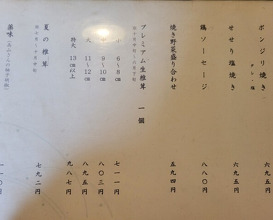 ボンジリ焼き 六九五円
タレ・塩
せせり塩焼き 六九五円
鶏ソーセージ 八八〇円
焼き野菜盛り合わせ 五九四円
プレミアム生椎茸 一個
小 6～8㎝ 七一一円
中 9～10㎝ 八〇三円
大 11～12㎝ 八九五円
特大 13㎝以上 九八七円
夏の椎茸 七九二円
薬味 一一〇円